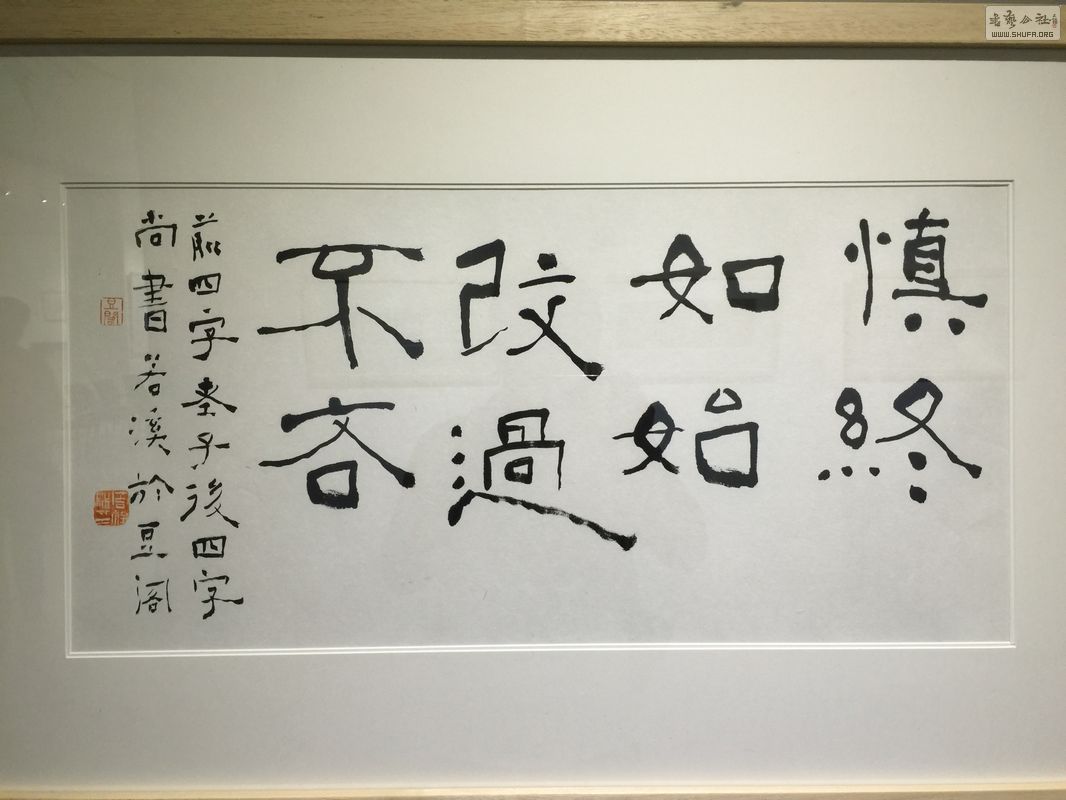 慎終
如始
改過
不吝
前四字老子後四字
尚書若溪於豆阁
豆閣
書艺公社
WWW.SHUFA.ORG